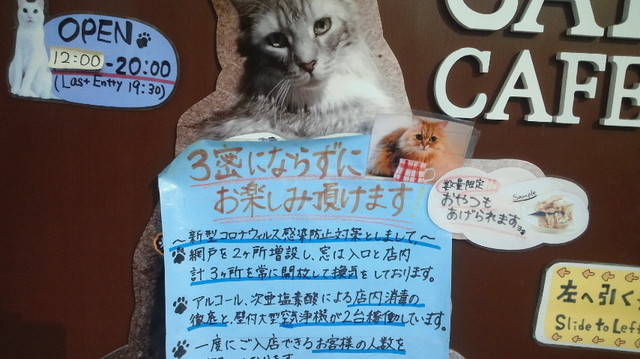 OPEN
12:00-20:00
(Last Entty 19:30)
CAFE
3密にならずに
お楽しみ頂けます!
数量限定
おやつも
あげられます。
Sample
～新型コロナウィルス感染防止対策としまして。～
網戸を2ヶ所増設し、窓は入口と店内
計3ヶ所を常に開放して換気をしております。
アルコール、次亜塩素酸による店内消毒の
徹底と、壁付大型空気浄機が2台稼働しています。
一度にご入店できるお客様の人数を
左へ引く
Slide to Left